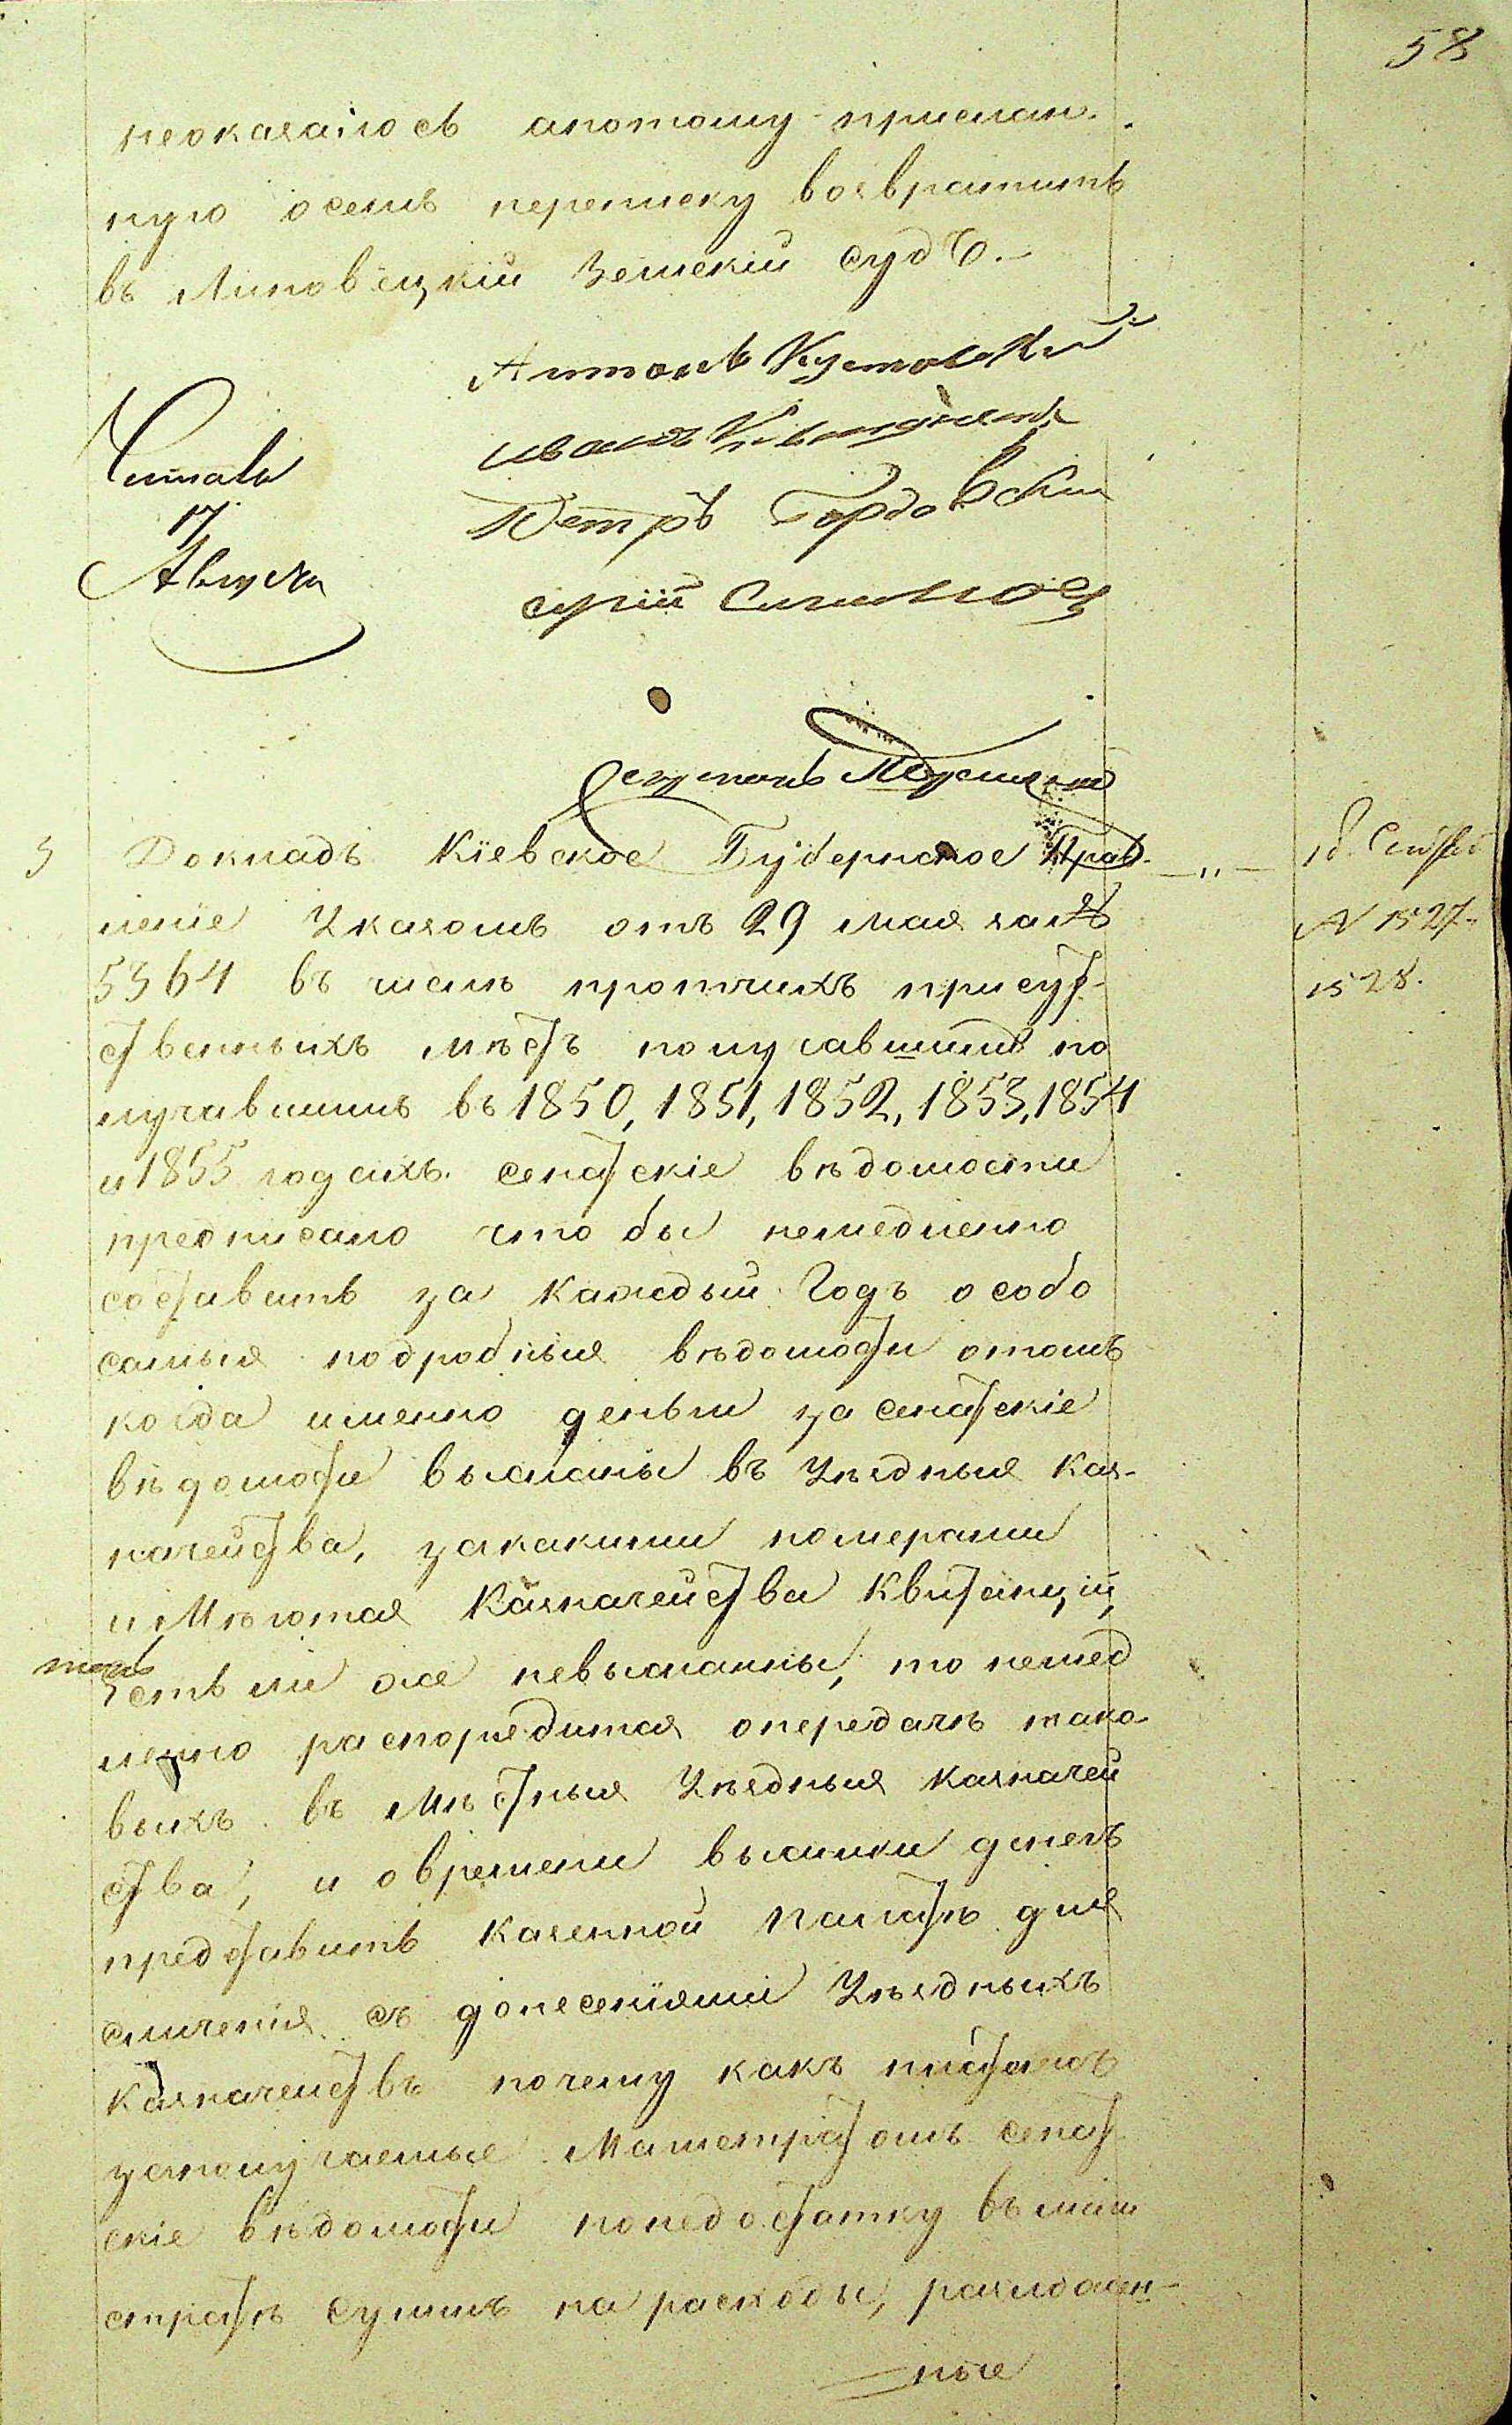 58
неоказалось апотому прислан-
ную осемъ переписку возвратить
въ Липовецкій Земскій судъ.-
Антонъ
иванъ
Читалъ
Петръ Гордовскій
17
Августа
3 Докладъ Кіевское Губернское Прав-
леніе Указомъ отъ 29 мая за№
5364 въ числѣ протчихъ присут-
ственныхъ мѣстъ получавшимъ по
лучавшимъ въ 1850, 1851, 1852, 1853, 1854
и 1855 годахъ. сенатскіе вѣдомости
предписало что бы немедленно
составить за каждый Годъ особо
самыя подробныя вѣдомости отомъ
когда именно деньги за сенатскіе
вѣдомости высланы въ Уѣздныя Каз-
начейства, закакими номерами
имѣются Казначейства Квитанціи,
Естьли же невысланны, то немед
ленно распорядится опередачѣ тако-
выхъ въ мѣстныя Уѣздныя казначей
ства, и овремени высылки денегъ
представить казенной Палатѣ для
сличенія съ донесеніями Уѣздныхъ
Казначействъ почему какъ
заполучаемые Магистратомъ сенат
скіе вѣдомости понедостатку въ маги
стратѣ суммъ на расходы,
ные
№ 1527-
1528.